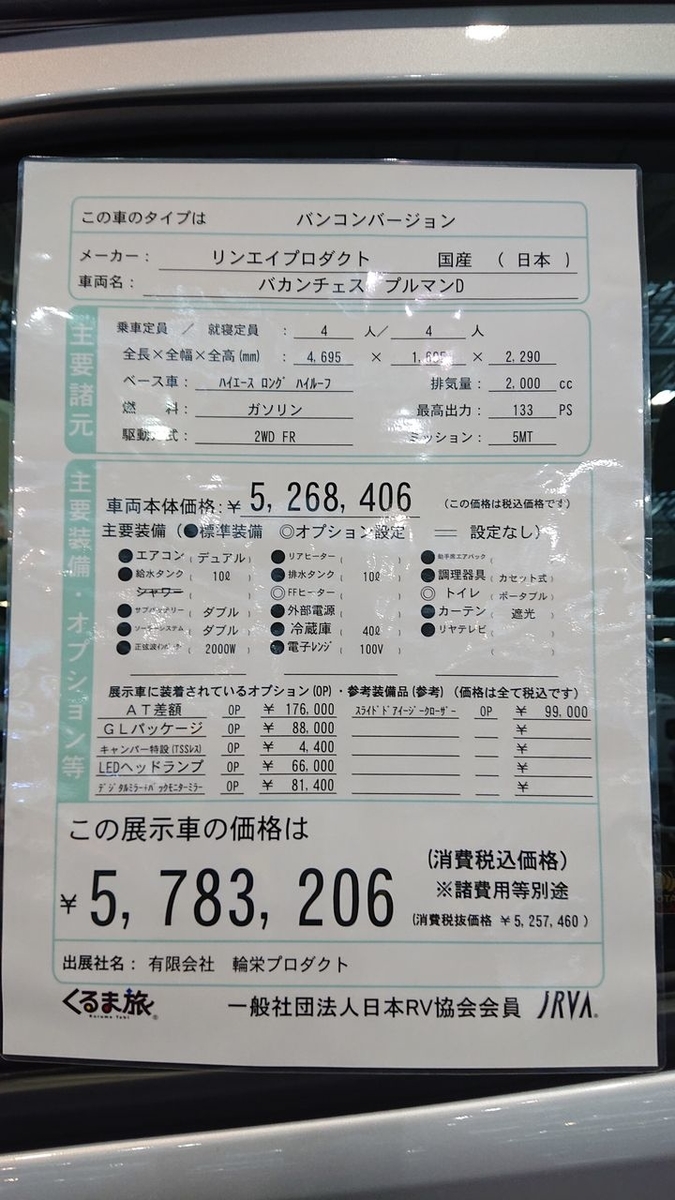 この車のタイプは バンコンバージョン
メーカー: リンエイプロダクト 国産 (日本)
車両名: バカンチェス プルマンD
主要諸元
乗車定員 / 就寝定員 : 4 人/ 4 人
全長×全幅×全高(mm) : 4,695 × 1,695 × 2,290
ベース車: ハイエース ロング ハイルーフ 排気量: 2,000 cc
燃 料: ガソリン 最高出力: 133 PS
駆動方式: 2WD FR ミッション: 5MT
主要装備・オプション等
車両本体価格: ¥ 5,268,406 (この価格は税込価格です)
主要装備 (●標準装備 ◎オプション設定 ═ 設定なし)
●エアコン (デュアル) ●リアヒーター ( ) ●助手席エアバック
●給水タンク (10ℓ) ●排水タンク (10ℓ) ●調理器具 (カセット式)
シャワー ( ) ◎FFヒーター ( ) ◎トイレ (ポータブル)
●サブバッテリー (ダブル) ●外部電源 ( ) ●カーテン (遮光)
●ソーラーシステム (ダブル) ●冷蔵庫 (40ℓ) ●リヤテレビ ( )
●正弦波インバーター (2000W) ●電子レンジ (100V) ( )
展示車に装着されているオプション(OP)・参考装備品(参考) (価格は全て税込です)
AT差額 OP ¥ 176,000 スライドドアイージークローザー OP ¥ 99,000
GLパッケージ OP ¥ 88,000 ¥
キャンパー特設(TSSレス) OP ¥ 4,400 ¥
LEDヘッドランプ OP ¥ 66,000 ¥
デジタルミラー+バックモニターミラー OP ¥ 81,400 ¥
この展示車の価格は
¥ 5,783,206 (消費税込価格)
※諸費用等別途
(消費税抜価格 ¥5,257,460)
出展社名: 有限会社 輪栄プロダクト
くるま旅 Kuruma Tabi ® 一般社団法人日本RV協会会員 JRVA®